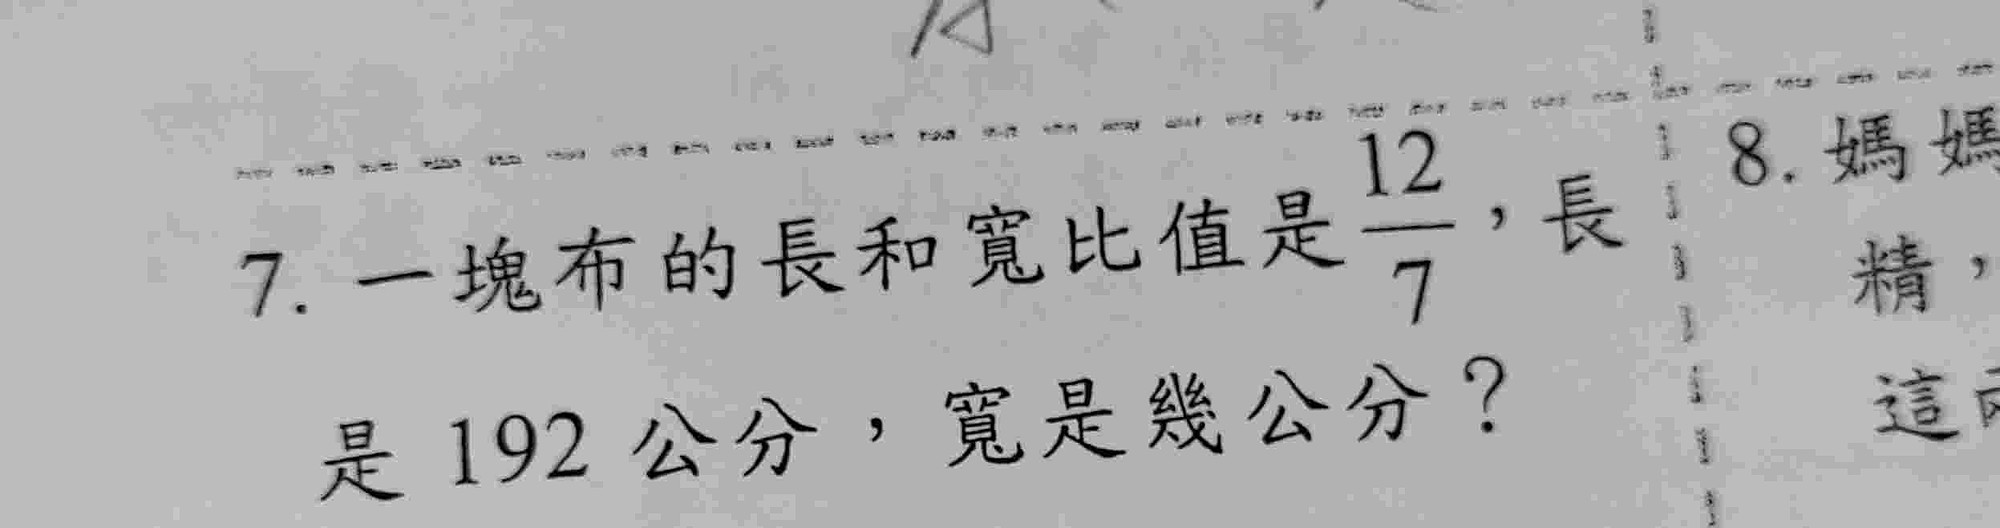 7. 一塊布的長和寬比值是12/7，長
是 192 公分，寬是幾公分？
8. 媽媽
精，
這